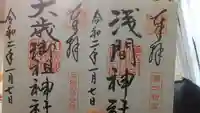 奉拝
浅間神社
令和二年一月七日
奉拝
大歳御祖神社
令和二年一月七日